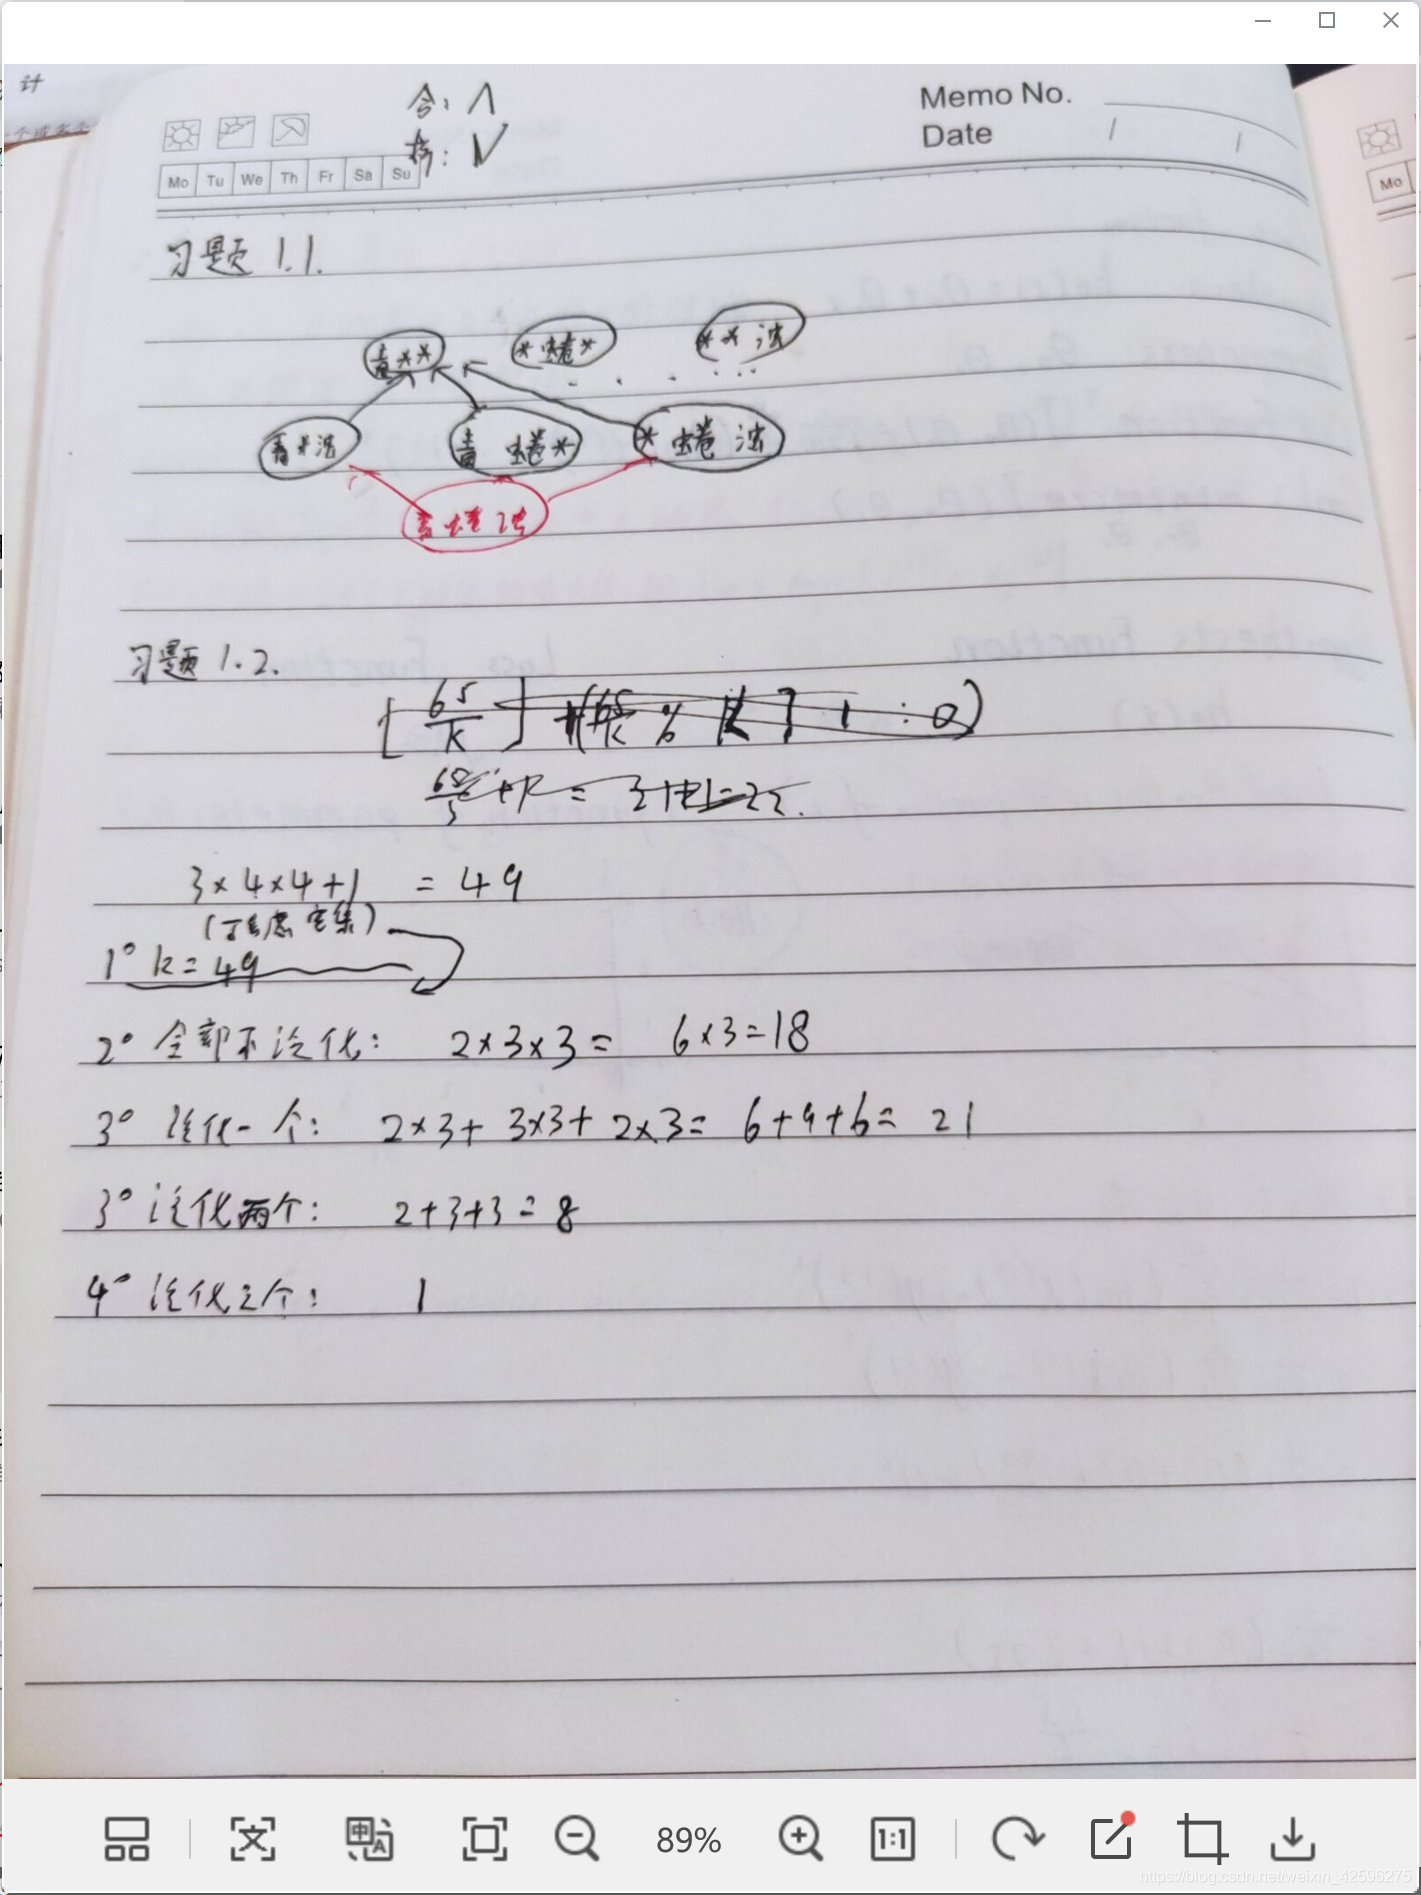 计
合: ∧
析: ∨
Memo No.
Date / /
Mo Tu We Th Fr Sa Su
Mo
习题 1.1.
青** *蜷* **浊
. . . . . .
青*浊 青蜷* *蜷浊
青蜷浊
习题 1.2.
[65/k]
3×4×4+1 = 49
(不考虑空集)
1° k=49
2° 全部不泛化: 2×3×3= 6×3=18
3° 泛化一个: 2×3+ 3×3+ 2×3= 6+9+6= 21
3° 泛化两个: 2+3+3=8
4° 泛化三个: 1
89%
1:1
https://blog.csdn.net/weixin_42596275